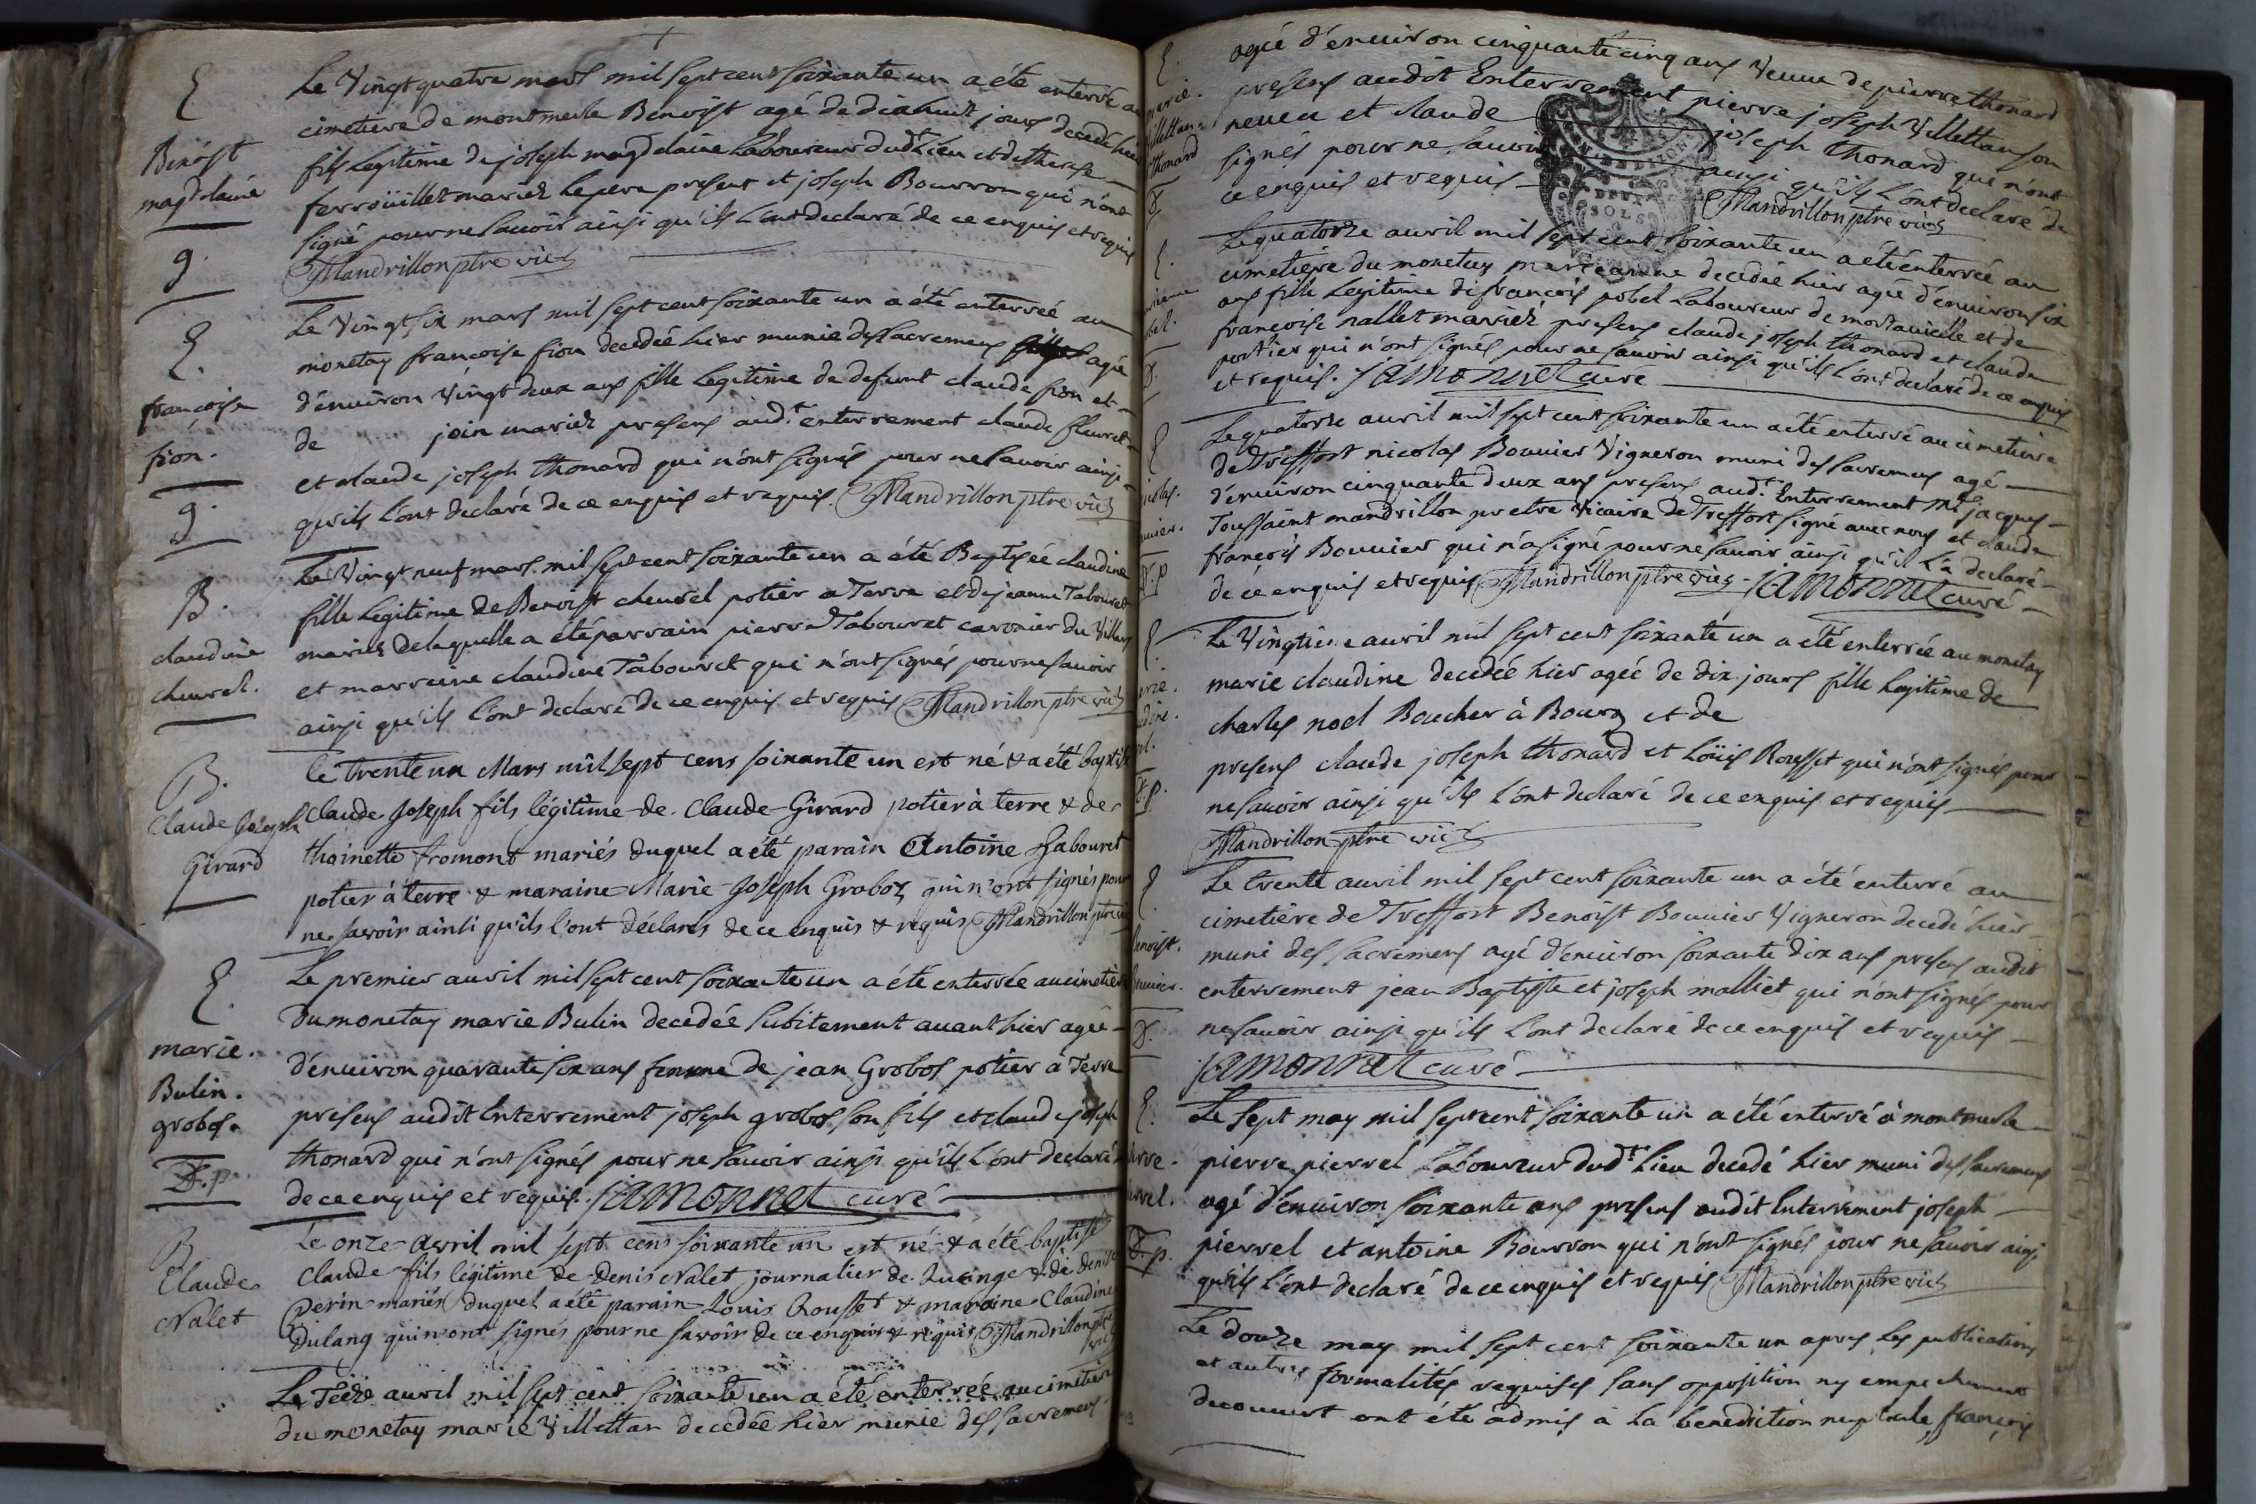 E
Le Vingt quatre mars mil sept cent soixante un a été enterré au
cimetiere de montmerle Benoist agé de dixhuit jours decedé hier
Benoist
magdelaine
fils legitime de joseph magdelaine laboureur dudt lieu et de therese
ferroüillet mariez le pere present et joseph Bourron qui n'ont
signé pour ne savoir ainsi qu'ils l'ont declaré de ce enquis et requis
g.
Mandrillon ptre vic
E.
Le Vingt six mars mil sept cent soixante un a été enterrée au
monetay francoise fion decedée hier munie des sacremens agée
francoise
fion.
d'environ Vingt deux ans fille legitime de defunt claude fion et
de join mariez presens audt enterrement claude fleuret
et claude joseph thonard qui n'ont signés pour ne savoir ainsi
g.
qu'ils l'ont declaré de ce enquis et requis. Mandrillon ptre vic
B.
Le Vingt neuf mars mil sept cent soixante un a été Baptisée claudine
fille legitime de Benoist cheurel potier a Terre et de jeanne Tabouret
claudine
cheurel.
mariez de laquelle a été parrain pierre Tabouret caronier du Villars
et marreine claudine Tabouret qui n'ont signés pour ne savoir
ainsi qu'ils l'ont declaré de ce enquis et requis Mandrillon ptre vic
B.
le trente un Mars mil sept cens soixante un est né & a été baptisé
Claude Joseph
Girard
Claude Joseph fils légitime de Claude Girard potier à terre & de
thoinette fromont mariés duquel a été parain Antoine Tabouret
potier à terre & maraine Marie Joseph Grobos qui n'ont signés pour
ne savoir ainsi qu'ils l'ont déclarés de ce enquis & requis Mandrillon ptre vic
E.
Le premier avril mil sept cent soixante un a été enterrée au cimetiere
du monetay marie Bulin decedée subitement avant hier agée
marie.
Bulin.
grobos.
d'environ quarante six ans femme de jean Grobos potier à Terre
presens audit Enterrement joseph grobos son fils et claude joseph
thonard qui n'ont signés pour ne savoir ainsi qu'ils l'ont declaré
D.p.
de ce enquis et requis. jamonnet curé
B
Claude
Nalet
Le onze Avril mil sept cens soixante un est né & a été baptisé
Claude fils légitime de Denis Nalet journalier de & de denise
Perin mariés duquel a été parain Louis Rousset & maraine Claudine
Dulang qui n'ont signés pour ne savoir de ce enquis & requis Mandrillon ptre vic
Le avril mil sept cent soixante un a été enterrée au cimetiere
du monetay marie Villettan decedée hier munie des sacremens
agée d'environ cinquante cinq ans Veuve de pierre thonard
presens audit Enterrement pierre joseph Villettan son
neveu et claude joseph thonard qui n'ont
signés pour ne savoir ainsi qu'ils l'ont declaré de
ce enquis et requis Mandrillon ptre vic
DEUX
SOLS
Le quatorze avril mil sept cent soixante un a été enterrée au
cimetiere du monetay marieanne decedée hier agée d'environ six
ans fille legitime de françois pobel Laboureur de mortavielle et de
françoise nallet mariez presens claude joseph thonard et claude
portier qui n'ont signés pour ne savoir ainsi qu'ils l'ont declaré de ce enquis
et requis. jamonnet curé
Le quatorze avril mil sept cent soixante un a été enterré au cimetiere
de Treffort nicolas Bouvier Vigneron muni des sacremens agé
d'environ cinquante deux ans presens audt Enterrement me jacques
Toussaint mandrillon pretre Vicaire de Treffort signé avec nous et claude
françois Bouvier qui n'a signé pour ne savoir ainsi qu'il l'a declaré
de ce enquis et requis Mandrillon ptre vic jamonnet curé
Le Vingtième avril mil sept cent soixante un a été enterrée au monetay
marie claudine decedée hier agée de dix jours fille legitime de
charles noel Boucher à Bourg et de
presens claude joseph thonard et Loüis Rousset qui n'ont signés pour
ne savoir ainsi qu'ils l'ont declaré de ce enquis et requis
Mandrillon ptre vic
Le trente avril mil sept cent soixante un a été enterré au
cimetière de Treffort Benoist Bouvier Vigneron decedé hier
muni des sacremens agé d'environ soixante dix ans presens audit
enterrement jean Baptiste et joseph malliet qui n'ont signés pour
ne savoir ainsi qu'ils l'ont declaré de ce enquis et requis
jamonnet curé
Le Sept may mil sept cent soixante un a été enterré à montmerle
pierre pierrel laboureur dudt lieu decedé hier muni des sacremens
agé d'environ soixante ans presens audit Enterrement joseph
pierrel et antoine Bourron qui n'ont signés pour ne savoir ainsi
D.p.
qu'ils l'ont declaré de ce enquis et requis Mandrillon ptre vic
Le douze may mil sept cent soixante un apres les publications
et autres formalités requises sans opposition ny empechement
decouvert ont été admis à la benediction nuptiale françois